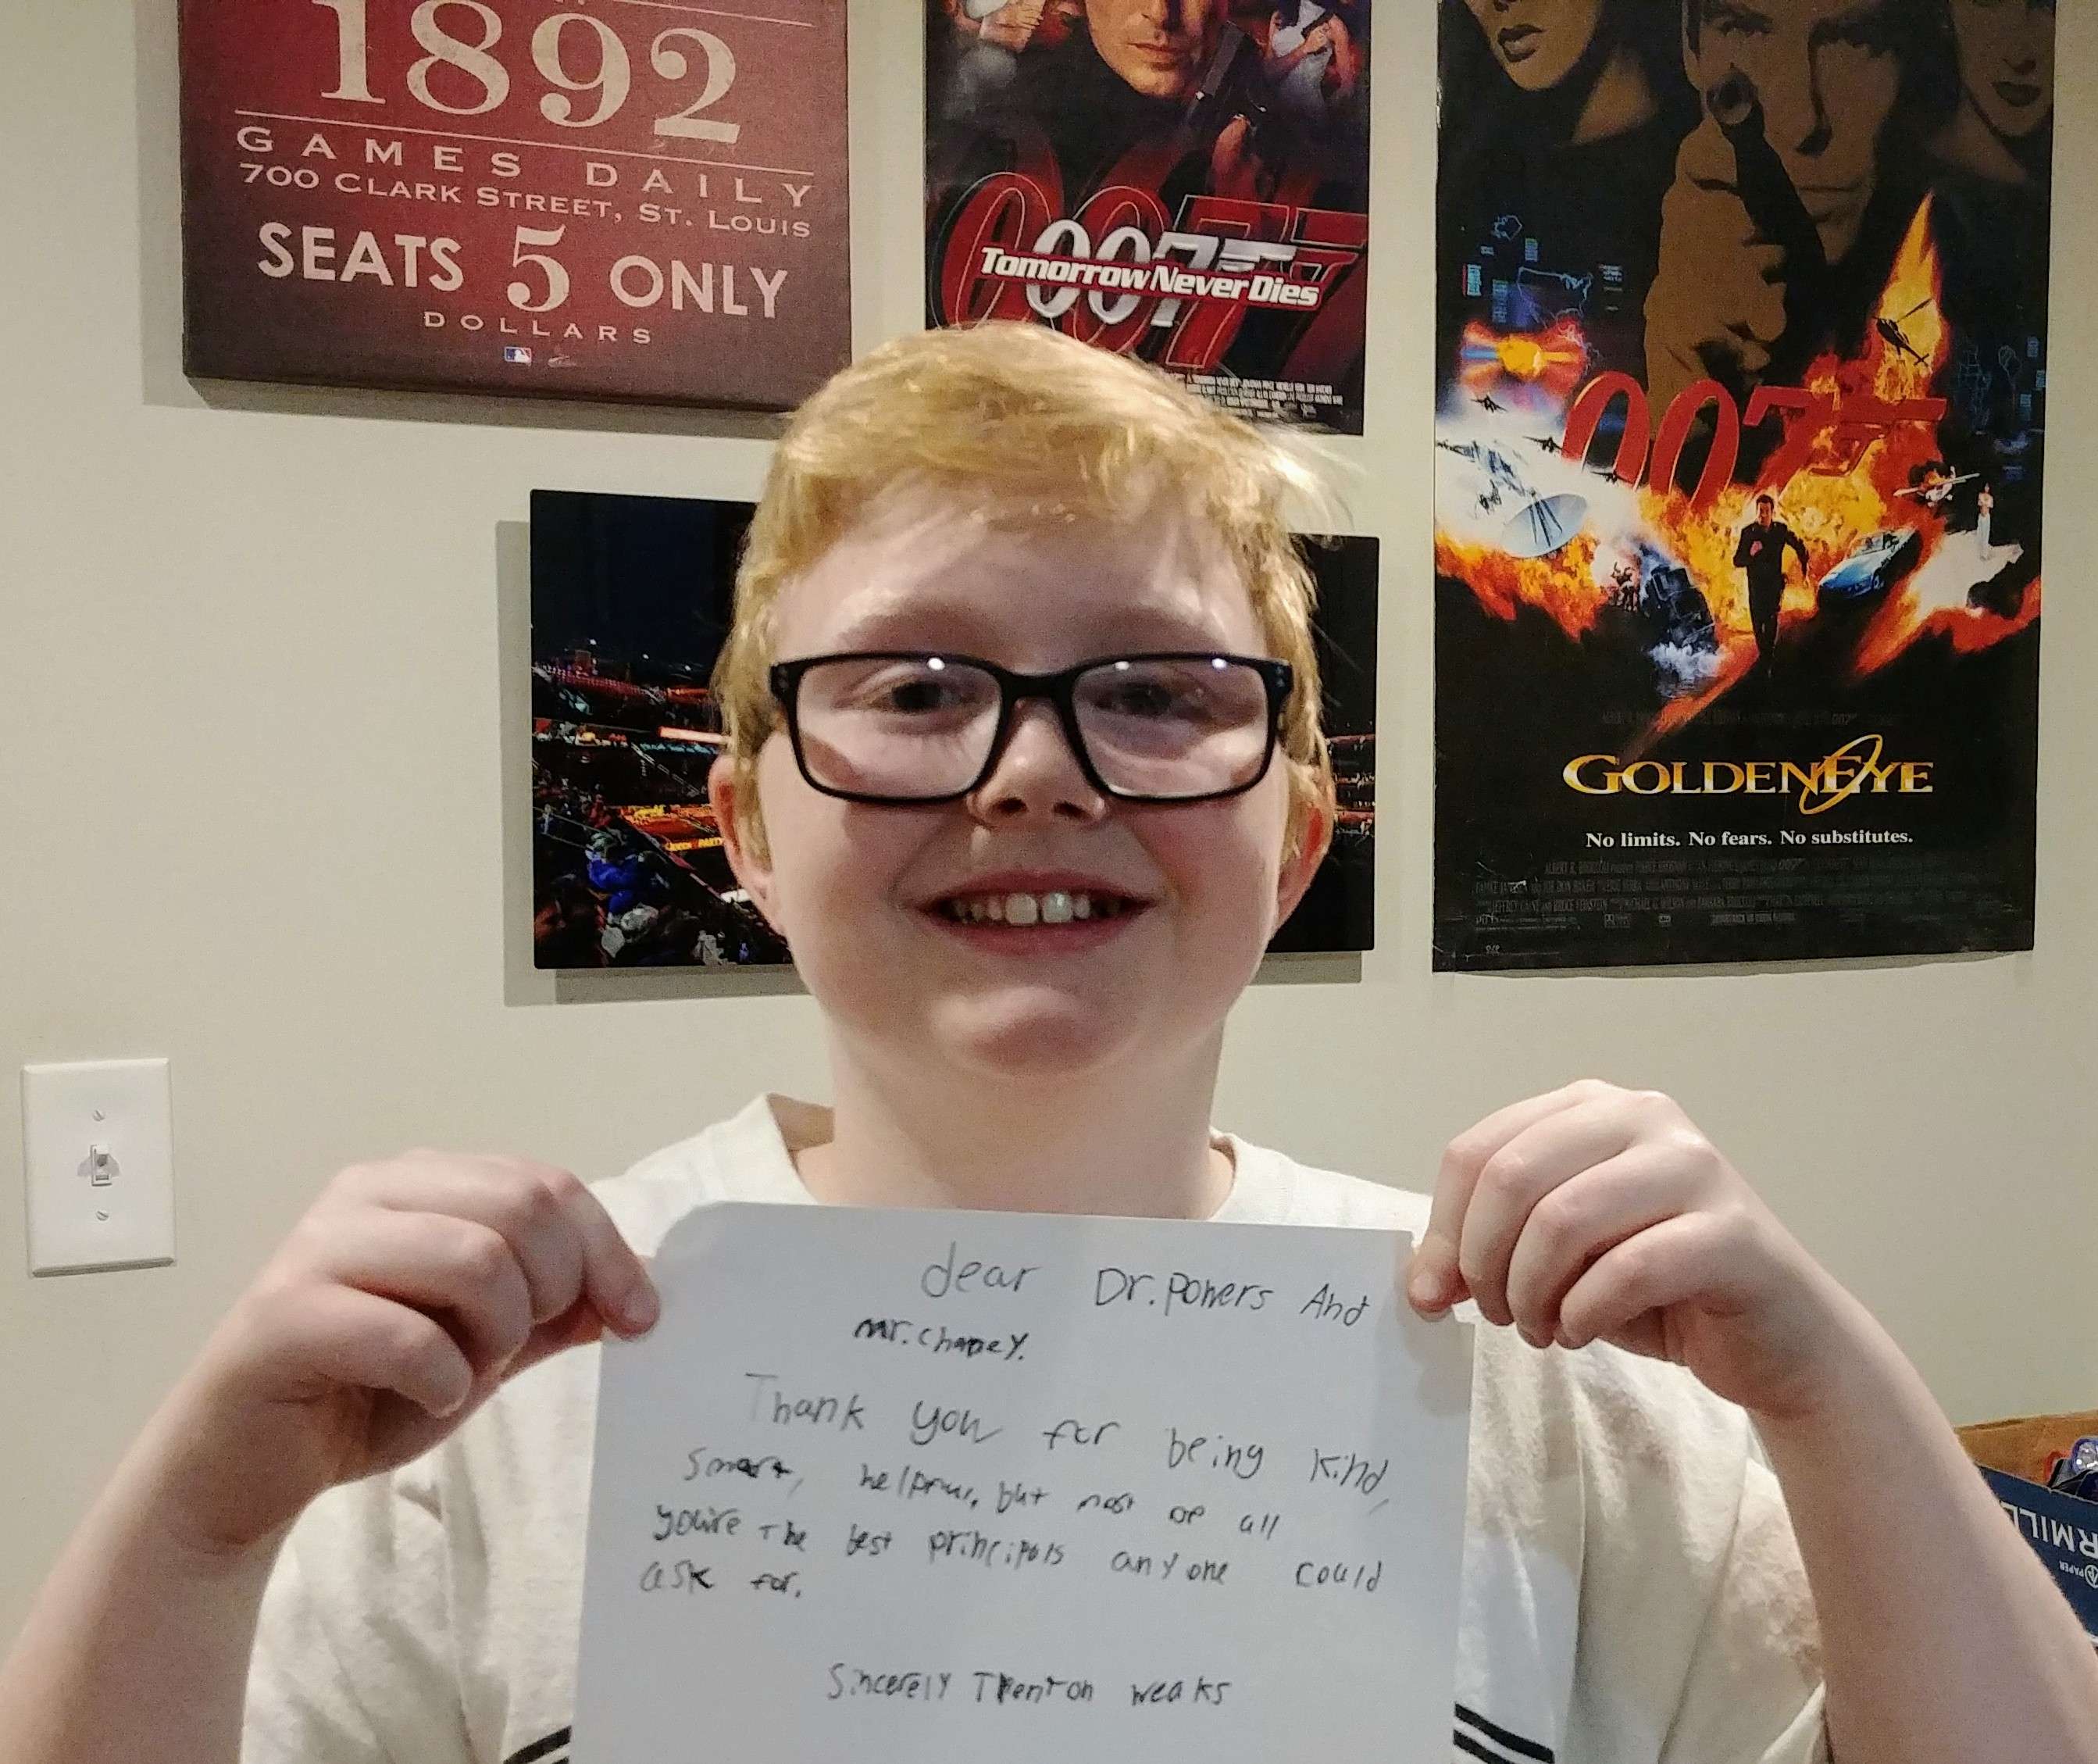 1892
GAMES DAILY
700 CLARK STREET, ST. LOUIS
SEATS 5 ONLY
DOLLARS
007
007
Tomorrow Never Dies
007
GOLDENEYE
No limits. No fears. No substitutes.
dear Dr. Powers And
mr. Chaney.
Thank you for being kind,
Smart, helpful, but most of all
you're The best principals anyone could
ask for.
Sincerely Trenton weaks
PAPER